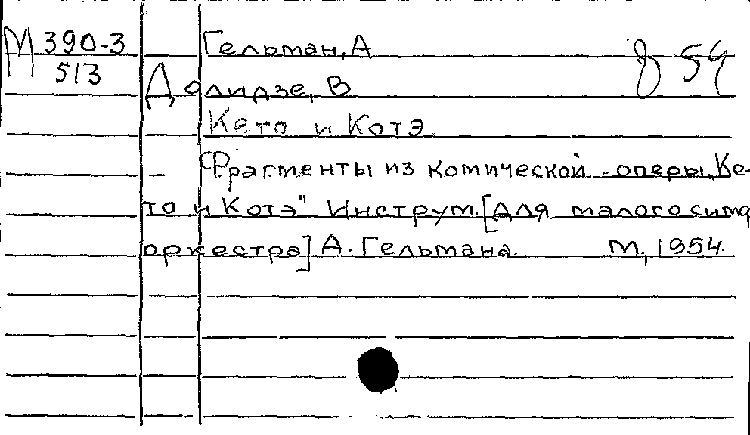 М 390-3
513
Гельман, А
Долидзе, В
Кето и Котэ
Фрагменты из комической оперы „Ке-
то и Котэ" Инструм. [для малого симф
оркестра] А. Гельмана. М, 1954.